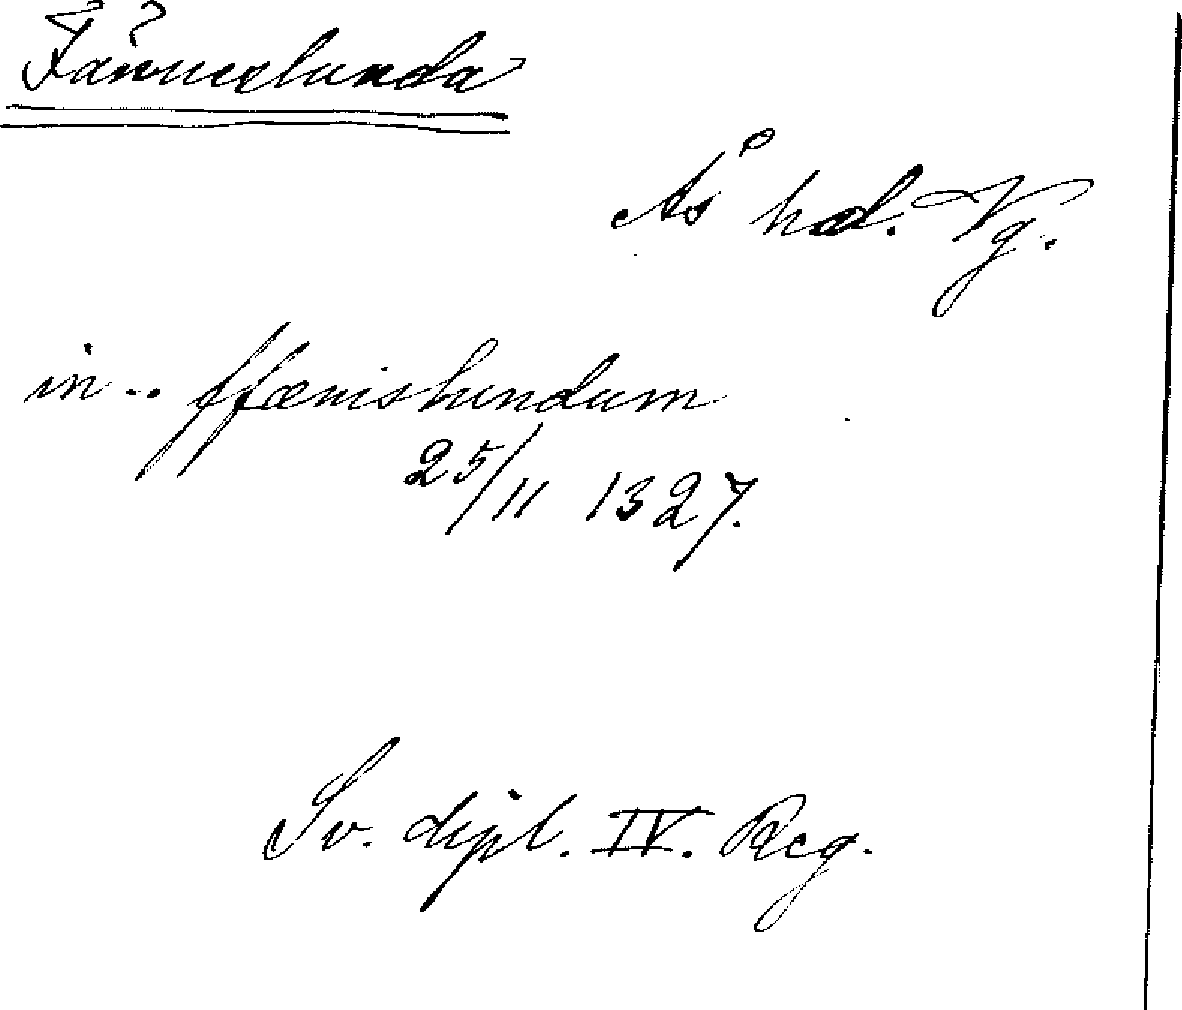 Fänneslunda
Ås hd. Vg.
in .. ffænislundum
25/11 1327.
Sv. dipl. IV. Reg.